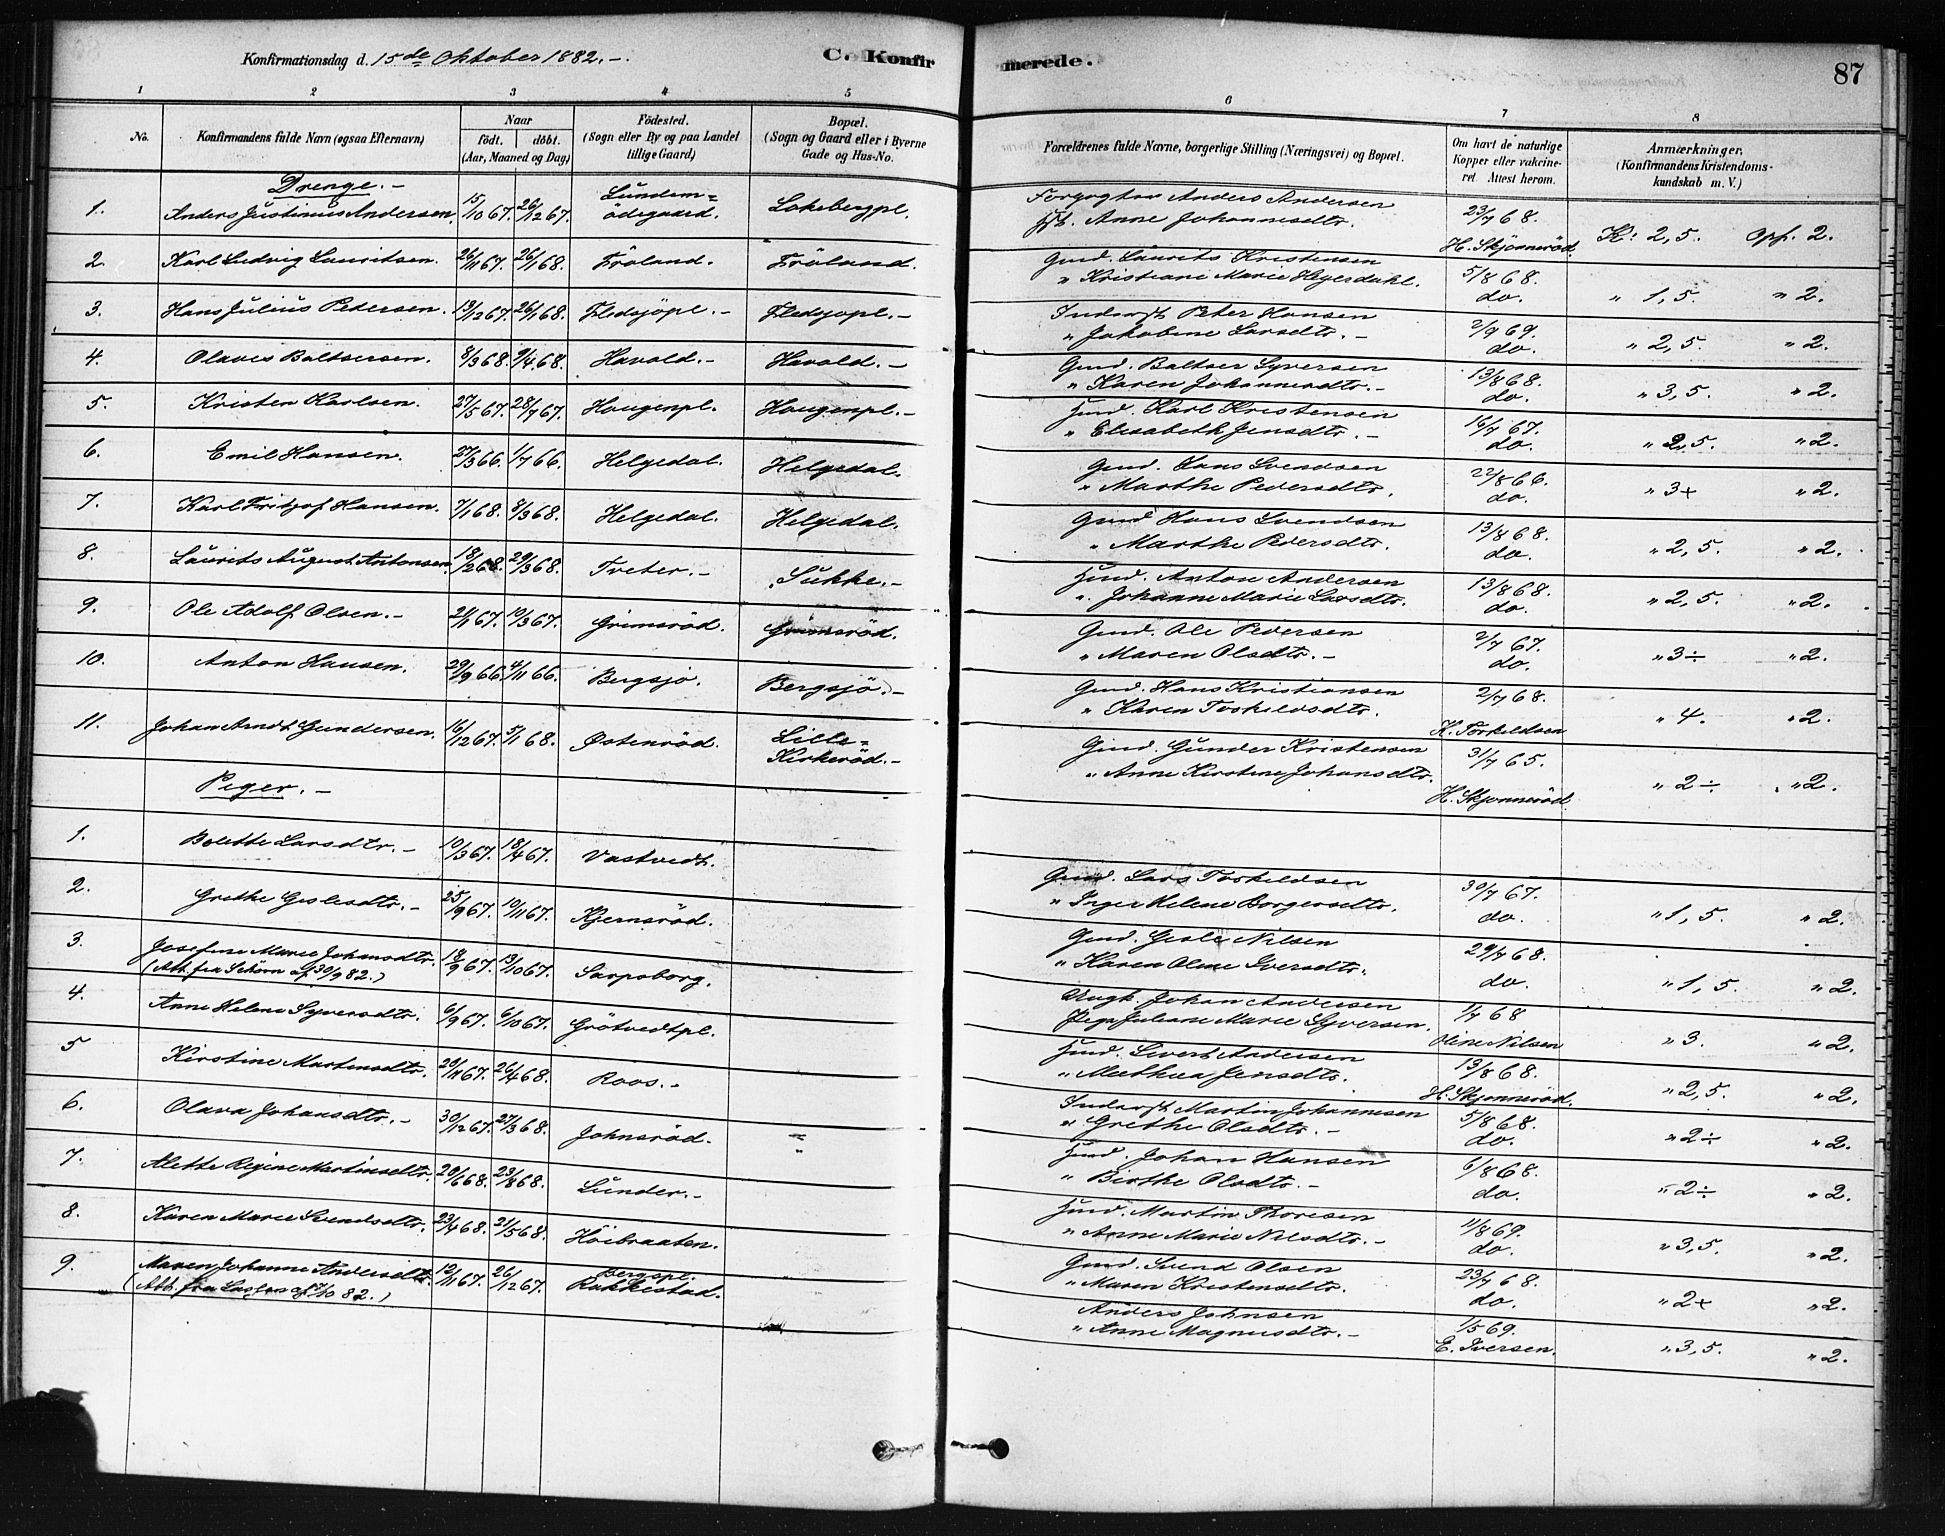 Konfirmationsdag d. 15de Oktober 1882. -
C. Konfirmerede.
87
1 2 3 4 5 6 7 8
No.
Konfirmandens fulde Navn (ogsaa Efternavn)
Naar
födt. döbt.
(Aar, Maaned og Dag)
Födested.
(Sogn eller By og paa Landet
tillige Gaard)
Bopæl.
(Sogn og Gaard eller i Byerne
Gade og Hus-No.
Forældrenes fulde Navne, borgerlige Stilling (Næringsvei) og Bopæl.
Om havt de naturlige
Kopper eller vakcine-
ret. Attest herom.
Anmærkninger.
(Konfirmandens Kristendoms-
kundskab m. V.)
Drenge. -
1. Anders Justinus Andersen. 15/10 67. 26/12 67. Lundem=ödegaard. Lokebergpl. Anders Andersen
Anne Johannesdtr. 23/7 68. H. Skjönneröd. K: 2,5. Opf. 2.
2. Karl Ludvig Lauritsen. 26/11 67. 26/1 68. Fröland. Fröland. Gmd. Laurits Kristensen
" Kristiane Marie Heyerdahl. 5/8 68. do. " 1,5. " 2.
3. Hans Julius Petersen. 13/12 67. 26/1 68. Fledsjöpl. - Fledsjöpl. - Inderst Peter Hansen
" Jakobine Larsdtr. - 2/9 69. do. " 2,5. " 2.
4. Olaves Baltsersen. 8/3 68. 9/4 68. Havold. - Havold. - Gmd. Baltser Syversen
" Karen Johannesdtr. - 13/8 68. do. " 3,5. " 2.
5. Kristen Karlsen. 27/5 67. 28/7 67. Haugenpl. Haugenpl. - Hmd. Karl Kristensen
" Elisabeth Jensdtr. - 16/7 67. do. " 2,5. " 2.
6. Emil Hansen. 27/3 66. 1/7 66. Helgedal. Helgedal. Gmd. Hans Svendsen
" Marthe Pedersdtr. 22/8 66. do. " 3+ " 2.
7. Karl Fritjof Hansen. 7/1 68. 8/3 68. Helgedal. Helgedal. Gmd Hans Svendsen
" Marthe Pedersdtr. 13/8 68. do. " 2,5. " 2.
8. Laurits August Antonsen. 18/2 68. 29/3 68. Tveter. - Sukke. - Hmd. Anton Andersen
" Johanne Marie Larsdtr. 13/8 68. do. " 2,5. " 2.
9. Ole Adolf Olsen. - 21/1 67. 10/3 67. Grimsröd. Grimsröd. Gmd. Ole Pedersen
" Maren Olsdtr. - 2/7 67. do. " 3÷ " 2.
10. Anton Hansen. 29/9 66. 4/11 66. Bergsjö. Bergsjö. - Gmd. Hans Kristiansen
" Karen Torkildsdtr. 2/7 68. K. Torkildsen " 4. " 2.
11. Johan Arndt Gundersen. 16/12 67. 5/1 68. Østenröd. Lille=Kirkeröd. - Gmd. Gunder Kristensen
" Anne Kirstine Johansdtr. 31/7 65. H. Skjönneröd " 2÷ " 2.
Piger. -
1. Bolette Larsdtr. - 10/3 67. 18/4 67. Vastvedt. Gmd. Lars Torkildsen
" Inger Helene Borgersdtr. 30/7 67. do. " 1,5. " 2.
2. Grethe Geslesdtr. - 25/9 67. 10/11 67. Kjernsröd. Gmd. Gesle Nilsen
" Karen Oline Iversdtr. 29/7 68. do. " 1,5. " 2.
3. Josefine Marie Johansdtr. 18/9 67. 13/10 67. Sarpsborg. Ungk. Johan Andersen
(Att. fra Schörn af 30/9 82.) Pige Juliane Marie Syversen. 1/7 68 Oline Nilsen " 3. " 2.
4. Anne Helene Syversdtr. 6/9 67. 6/10 67. Grötvedtpl. Hmd. Sivert Andersen
" Mathea Jensdtr. 13/8 68. H. Skjönneröd. " 2,5. " 2.
5 Kirstine Martinsdtr. 20/11 67. 26/4 68. Roos. - Inderst Martin Johannesen
" Grethe Olsdtr. - 5/8 68. do. " 2÷ " 2.
6. Olava Johansdtr. - 30/12 67. 27/3 68. Johnsröd. " Hmd. Johan Hansen
" Birthe Olsdtr. - 6/8 68. do. " 2÷ " 2.
7. Alette Regine Martinsdtr. 20/6 68. 23/8 68. Lunder. - Hmd. Martin Thoresen
" Anne Marie Nilsdtr. - 11/8 69. do. " 3,5. " 2.
8. Karen Marie Svendsdtr. 23/4 68. 21/5 68. Höibraaten. Gmd. Svend Olsen
" Maren Kristensdtr. 23/7 68. do. " 2+ " 2.
9. Maren Johanne Andersdtr. 12/11 67. 26/12 67. Bergspl. Rakkestad. Anders Johnsen
(Att. fra 82.) " Anne Magnusdtr. - 1/5 69. E. Iversen. " 3,5. " 2.